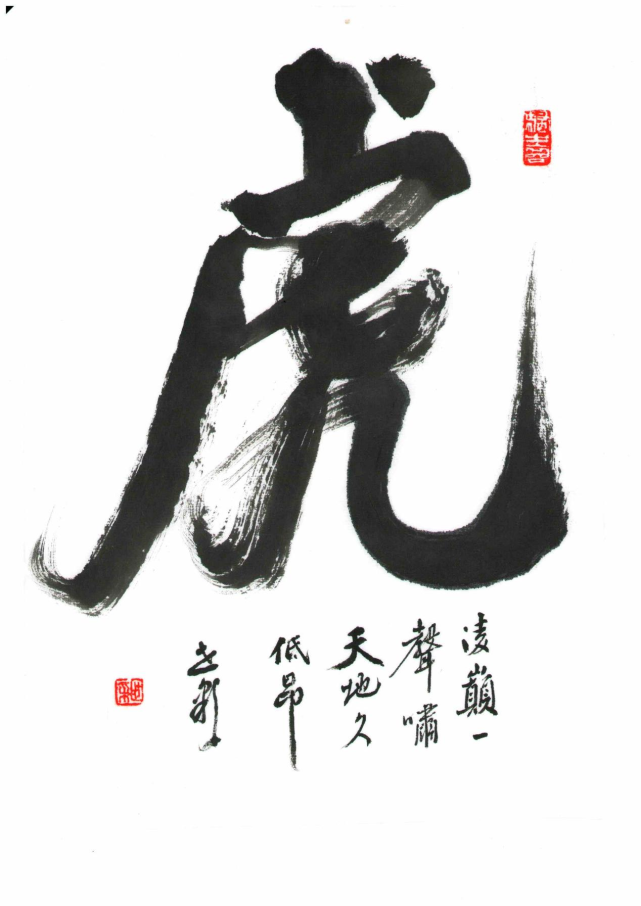 虎
凌巔一
聲嘯
天地久
低昂